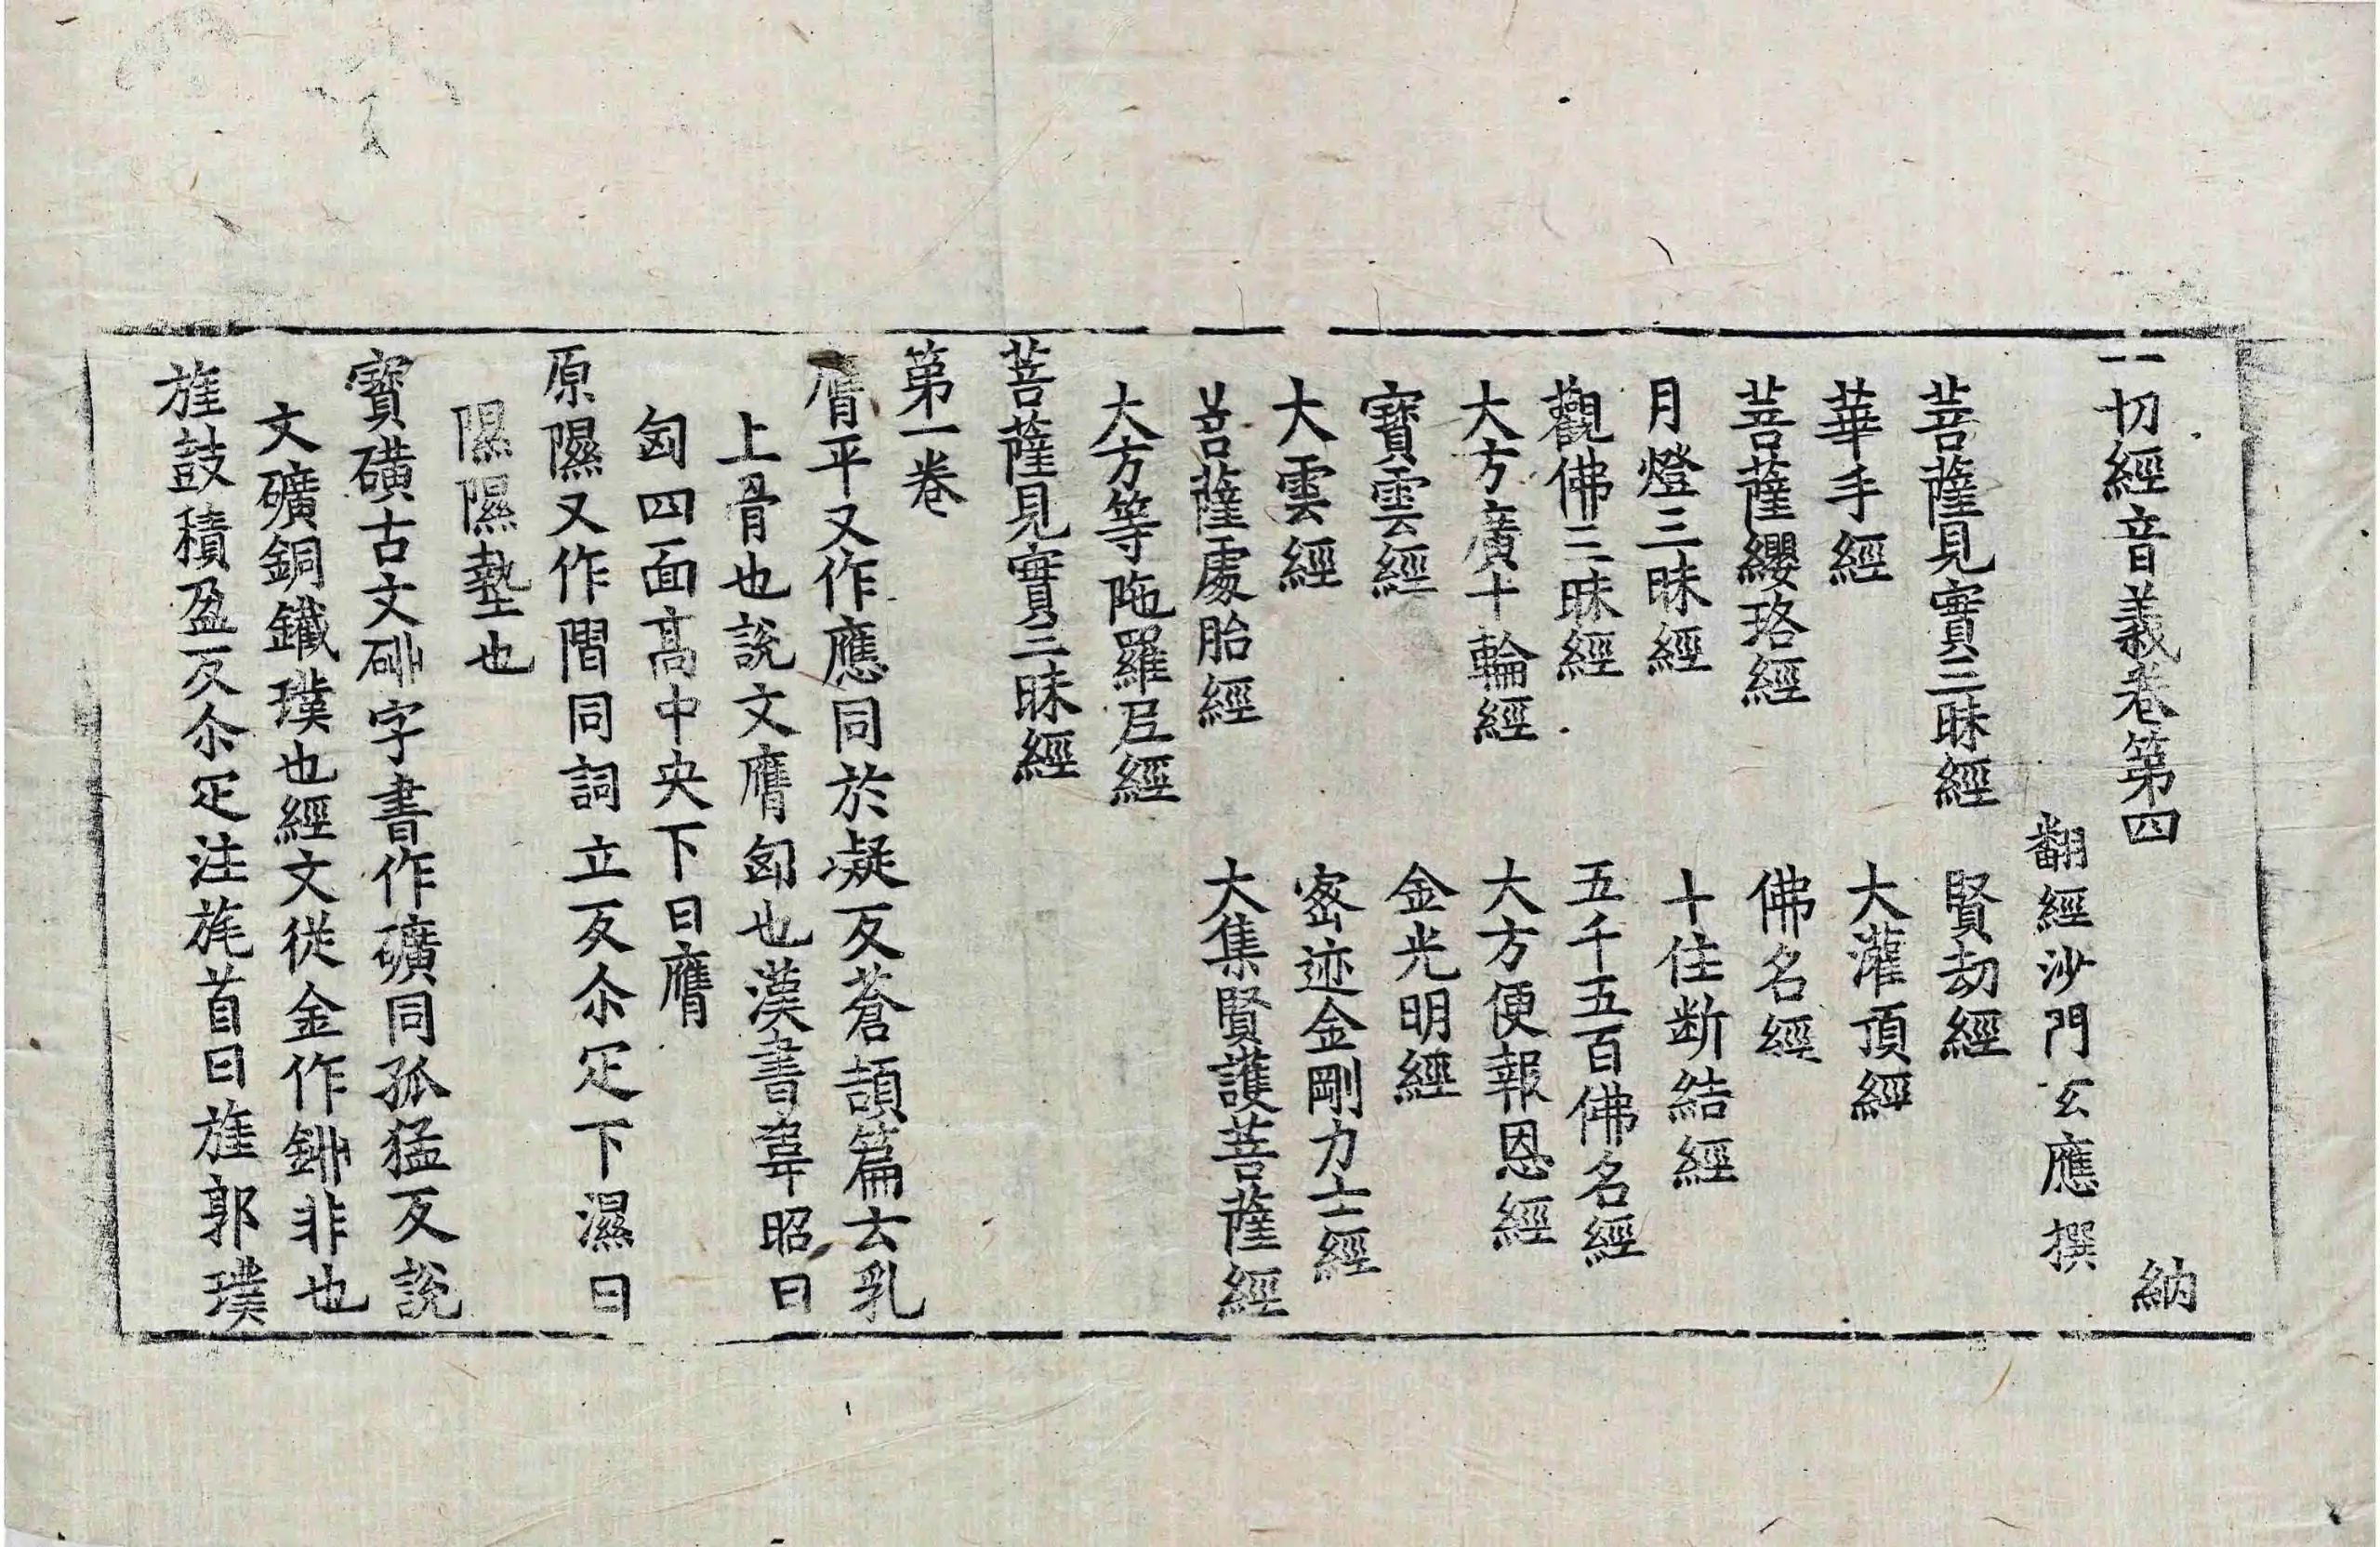 一切經音義卷第四 納
翻經沙門玄應撰
菩薩見實三昧經 賢劫經
華手經 大灌頂經
菩薩纓珞經 佛名經
月燈三昧經 十住断結經
觀佛三昧經 五千五百佛名經
大方廣十輪經 大方便報恩經
寶雲經 金光明經
大雲經 密迹金剛力士經
菩薩處胎經 大集賢護菩薩經
大方等陁羅尼經
菩薩見實三昧經
第一卷
膺平又作應同於凝反蒼頡篇云乳
上骨也說文膺匈也漢書韋昭曰
匈四面高中央下曰膺
原隰又作㵝同詞立反尒疋下濕曰
隰隰墊也
寶礦古文砂字書作礦同孤猛反説
文礦銅鐵璞也經文從金作鉚非也
旌鼓積盈反尒疋注旄首曰旌郭璞